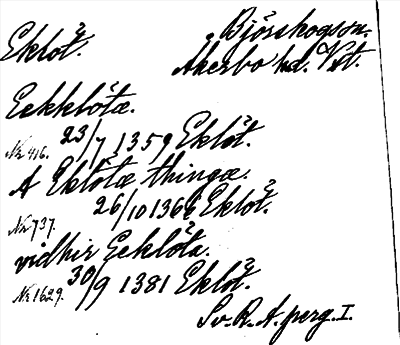 Eklöt. Björskogs sn.
Åkerbo hd. Vst.
Eekklötæ.
Nr 416. 23/7 1359 Eklöt.
A Eklötæ thingæ.
Nr 737. 26/10 1366 Eklöt.
vidhir Eeklöta.
Nr 1629. 30/9 1381 Eklöt.
Sv. R. A. perg. I.